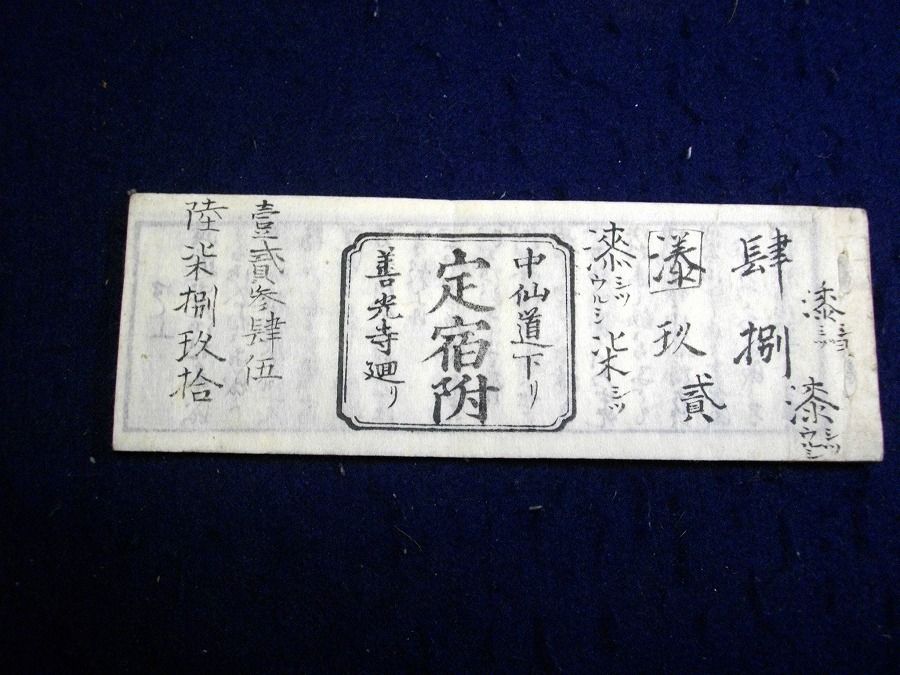 漆シツ
漆シツウルシ
肆捌
漆玖貮
漆シツウルシ柒シツ
中仙道下リ
定宿附
善光寺廻リ
壹貳參肆伍
陸柒捌玖拾